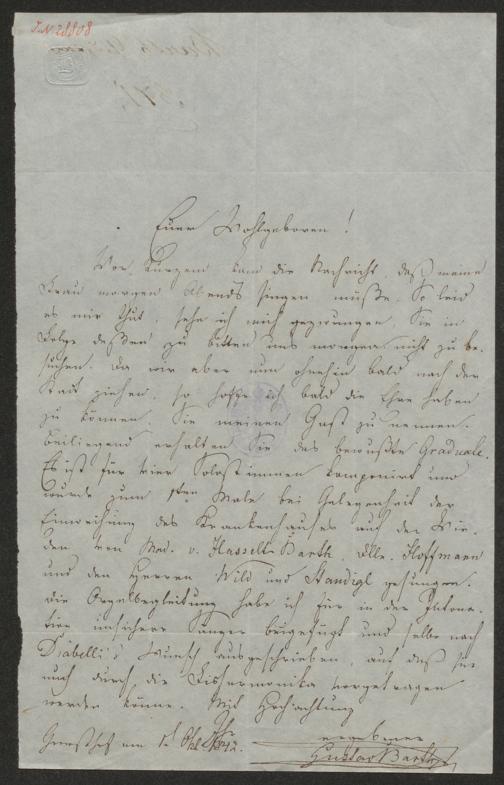 J.N. 28808
Euer Wohlgeboren!
Vor Kurzem kam die Nachricht, daß meine
Frau morgen Abends singen müße. So leid
es mir thut, sehe ich mich gezwungen, Sie in
Folge deßen zu bitten uns morgen nicht zu be-
suchen. Da wir aber nun ohnehin bald nach der
Stadt ziehen, so hoffe ich bald die Ehre haben
zu können Sie meinen Gast zu nennen.
Beiliegend erhalten Sie das bewußte Graduale.
Es ist für vier Solostimmen komponirt und
wurde zum 1ten Male bei Gelegenheit der
Einweihung des Krankenhauses auf der Wie-
den von Mad. v. Hasselt-Barth, Dlle. Hoffmann
und den Herren Wild und Staudigl gesungen.
Die Orgelbegleitung habe ich für in der Intona-
tion unsichere Sänger beigefügt und selbe nach
Diabelli's Wunsch ausgeschrieben, auf daß sie
auch durch die Fisharmonika vorgetragen
werden könne. Mit Hochachtung
Ihr
am 1t Okt. 1842.
ergebener
Gustav Barth